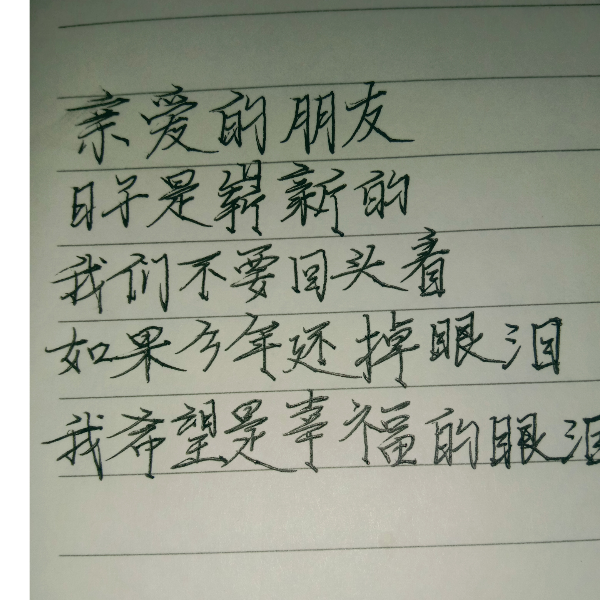 亲爱的朋友
日子是崭新的
我们不要回头看
如果今年还掉眼泪
我希望是幸福的眼泪